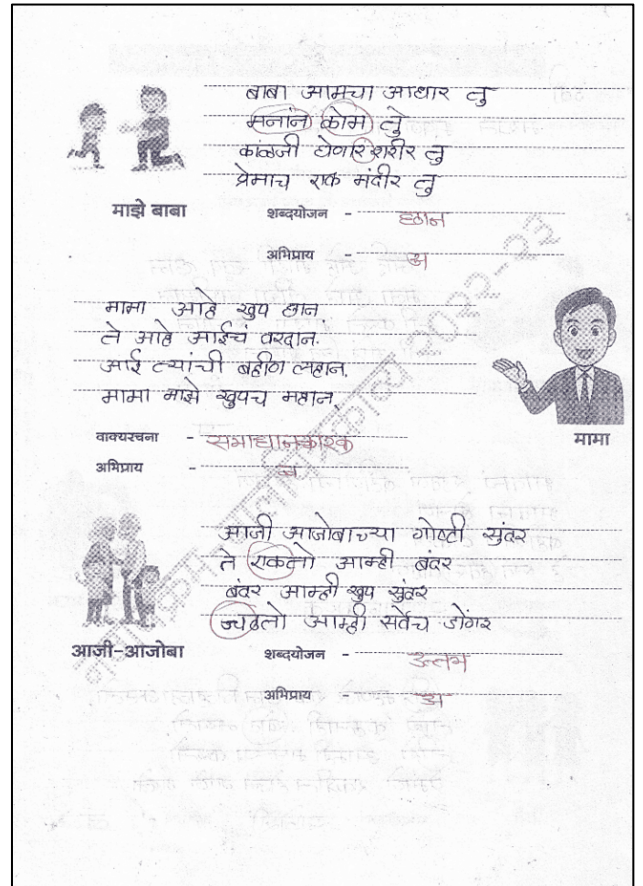 बाबा आमचा आधार तु
मनांन कोम तु
काळजी घेणारि शरीर तु
प्रेमाच एक मंदीर तु
माझे बाबा
शब्दयोजन - छान
अभिप्राय - अ
मामा आहे खुप छान.
ते आहे आईचं वरदान.
आई त्यांची बहीण लहान.
मामा माझे खुपच महान.
मामा
वाक्यरचना - समाधानकारक
अभिप्राय - ब
आजी आजोबाच्या गोष्टी सुंदर
ते एकतो आम्ही बंदर
बंदर आम्ही खुप सुंदर
ज्यढलो आम्ही सर्वेच डोंगर
आजी-आजोबा
शब्दयोजन - उत्तम
अभिप्राय - अ
बालचित्रकाव्य 2022-23